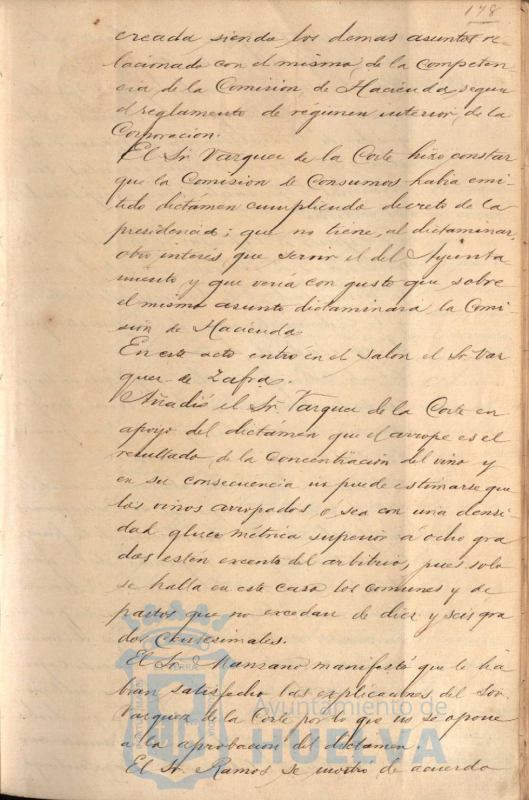 178
creada siendo los demas asuntos re-
lacionado con el mismo, de la Competen-
cia de la Comision de Hacienda, segun
el reglamento de régimen interior, de la
Corporacion.
El Sr. Vazquez de la Corte hizo constar
que la Comision de Consumos habia emi-
tido dictamen cumpliendo decreto de la
presidencia; que no tiene, al dictaminar,
otro interés, que servir el del Ayunta
miento y que veria con gusto que sobre
el mismo asunto dictaminara la Comi-
sion de Hacienda
En este acto entró en el salon el Sr. Vaz
quez de Zafra.
Añadió el Sr. Vazquez de la Corte en
apoyo del dictámen que el arrope es el
resultado de la concentracion del vino y
en su consecuencia no puede estimarse que
los vinos arropados ó sea con una densi
dad glucométrica superior á ocho gra
dos esten excento del arbitrio, pues solo
se halla en este caso los comunes y de
pastos que no excedan de diez y seis gra
dos Centesimales.
El Sr. Manzano manifestó que le ha
bian satisfecho las explicaciones del Sor.
Vazquez de la Corte por lo que no se opone
á la aprobacion del dictamen.
El Sr. Ramos se mostro de acuerdo
Ayuntamiento de
HUELVA